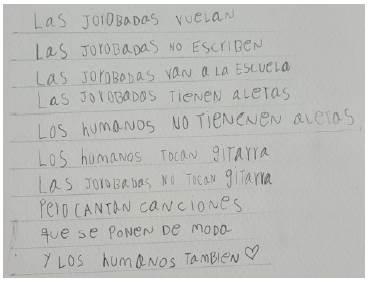 Las JOROBADAS VUELAN
Las JOROBADAS NO ESCRIBEN
Las JOROBADAS VAN a La ESCUELA
Las JOROBADAS TIENEN ALETAS
LOS humaNOS NO TIENENEN ALETAS
LOS humaNOS TOCAN GITARRA
Las JOROBADAS NO TOCAN GITARRA
PERO CANTAN CANCIONES
que se PONEN DE MODA
Y LOS humaNOS TAMBIEN ♡